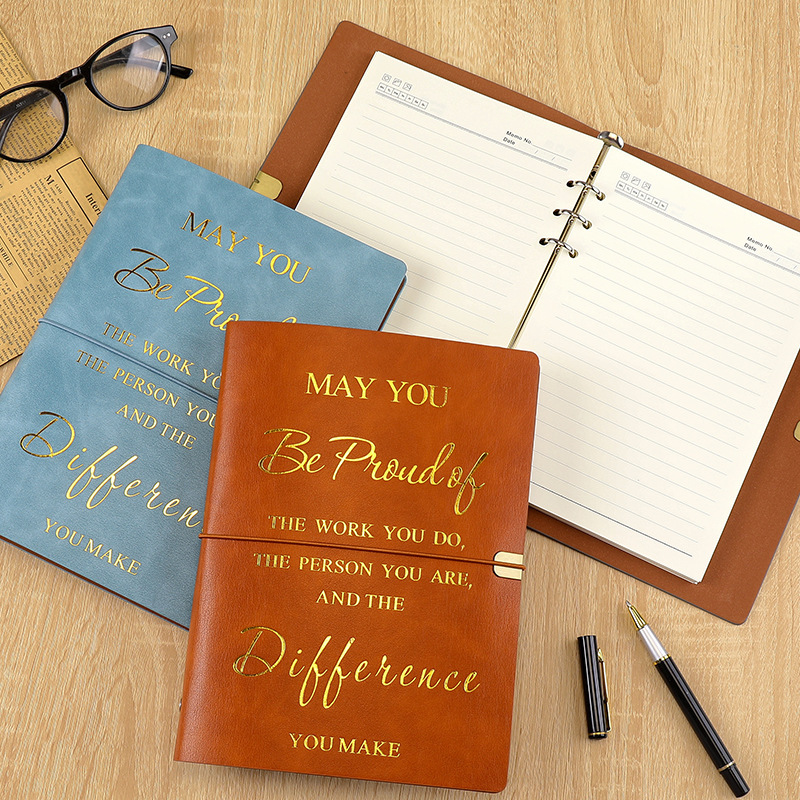 MAY YOU
Be Proud of
THE WORK YOU DO,
THE PERSON YOU ARE,
AND THE
Difference
YOU MAKE
MAY YOU
Be Pro
THE WORK YO
THE PERSON YOU
AND THE
Differen
YOU MAKE
Memo No.
Date / /
Memo No.
Date / /